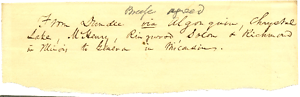 agreed
From Dundee via Algonquin, Chrystal
Lake, McHenry, Ringwood, Solon & Richmond
in Illinois to Geneva in Wisconsin.